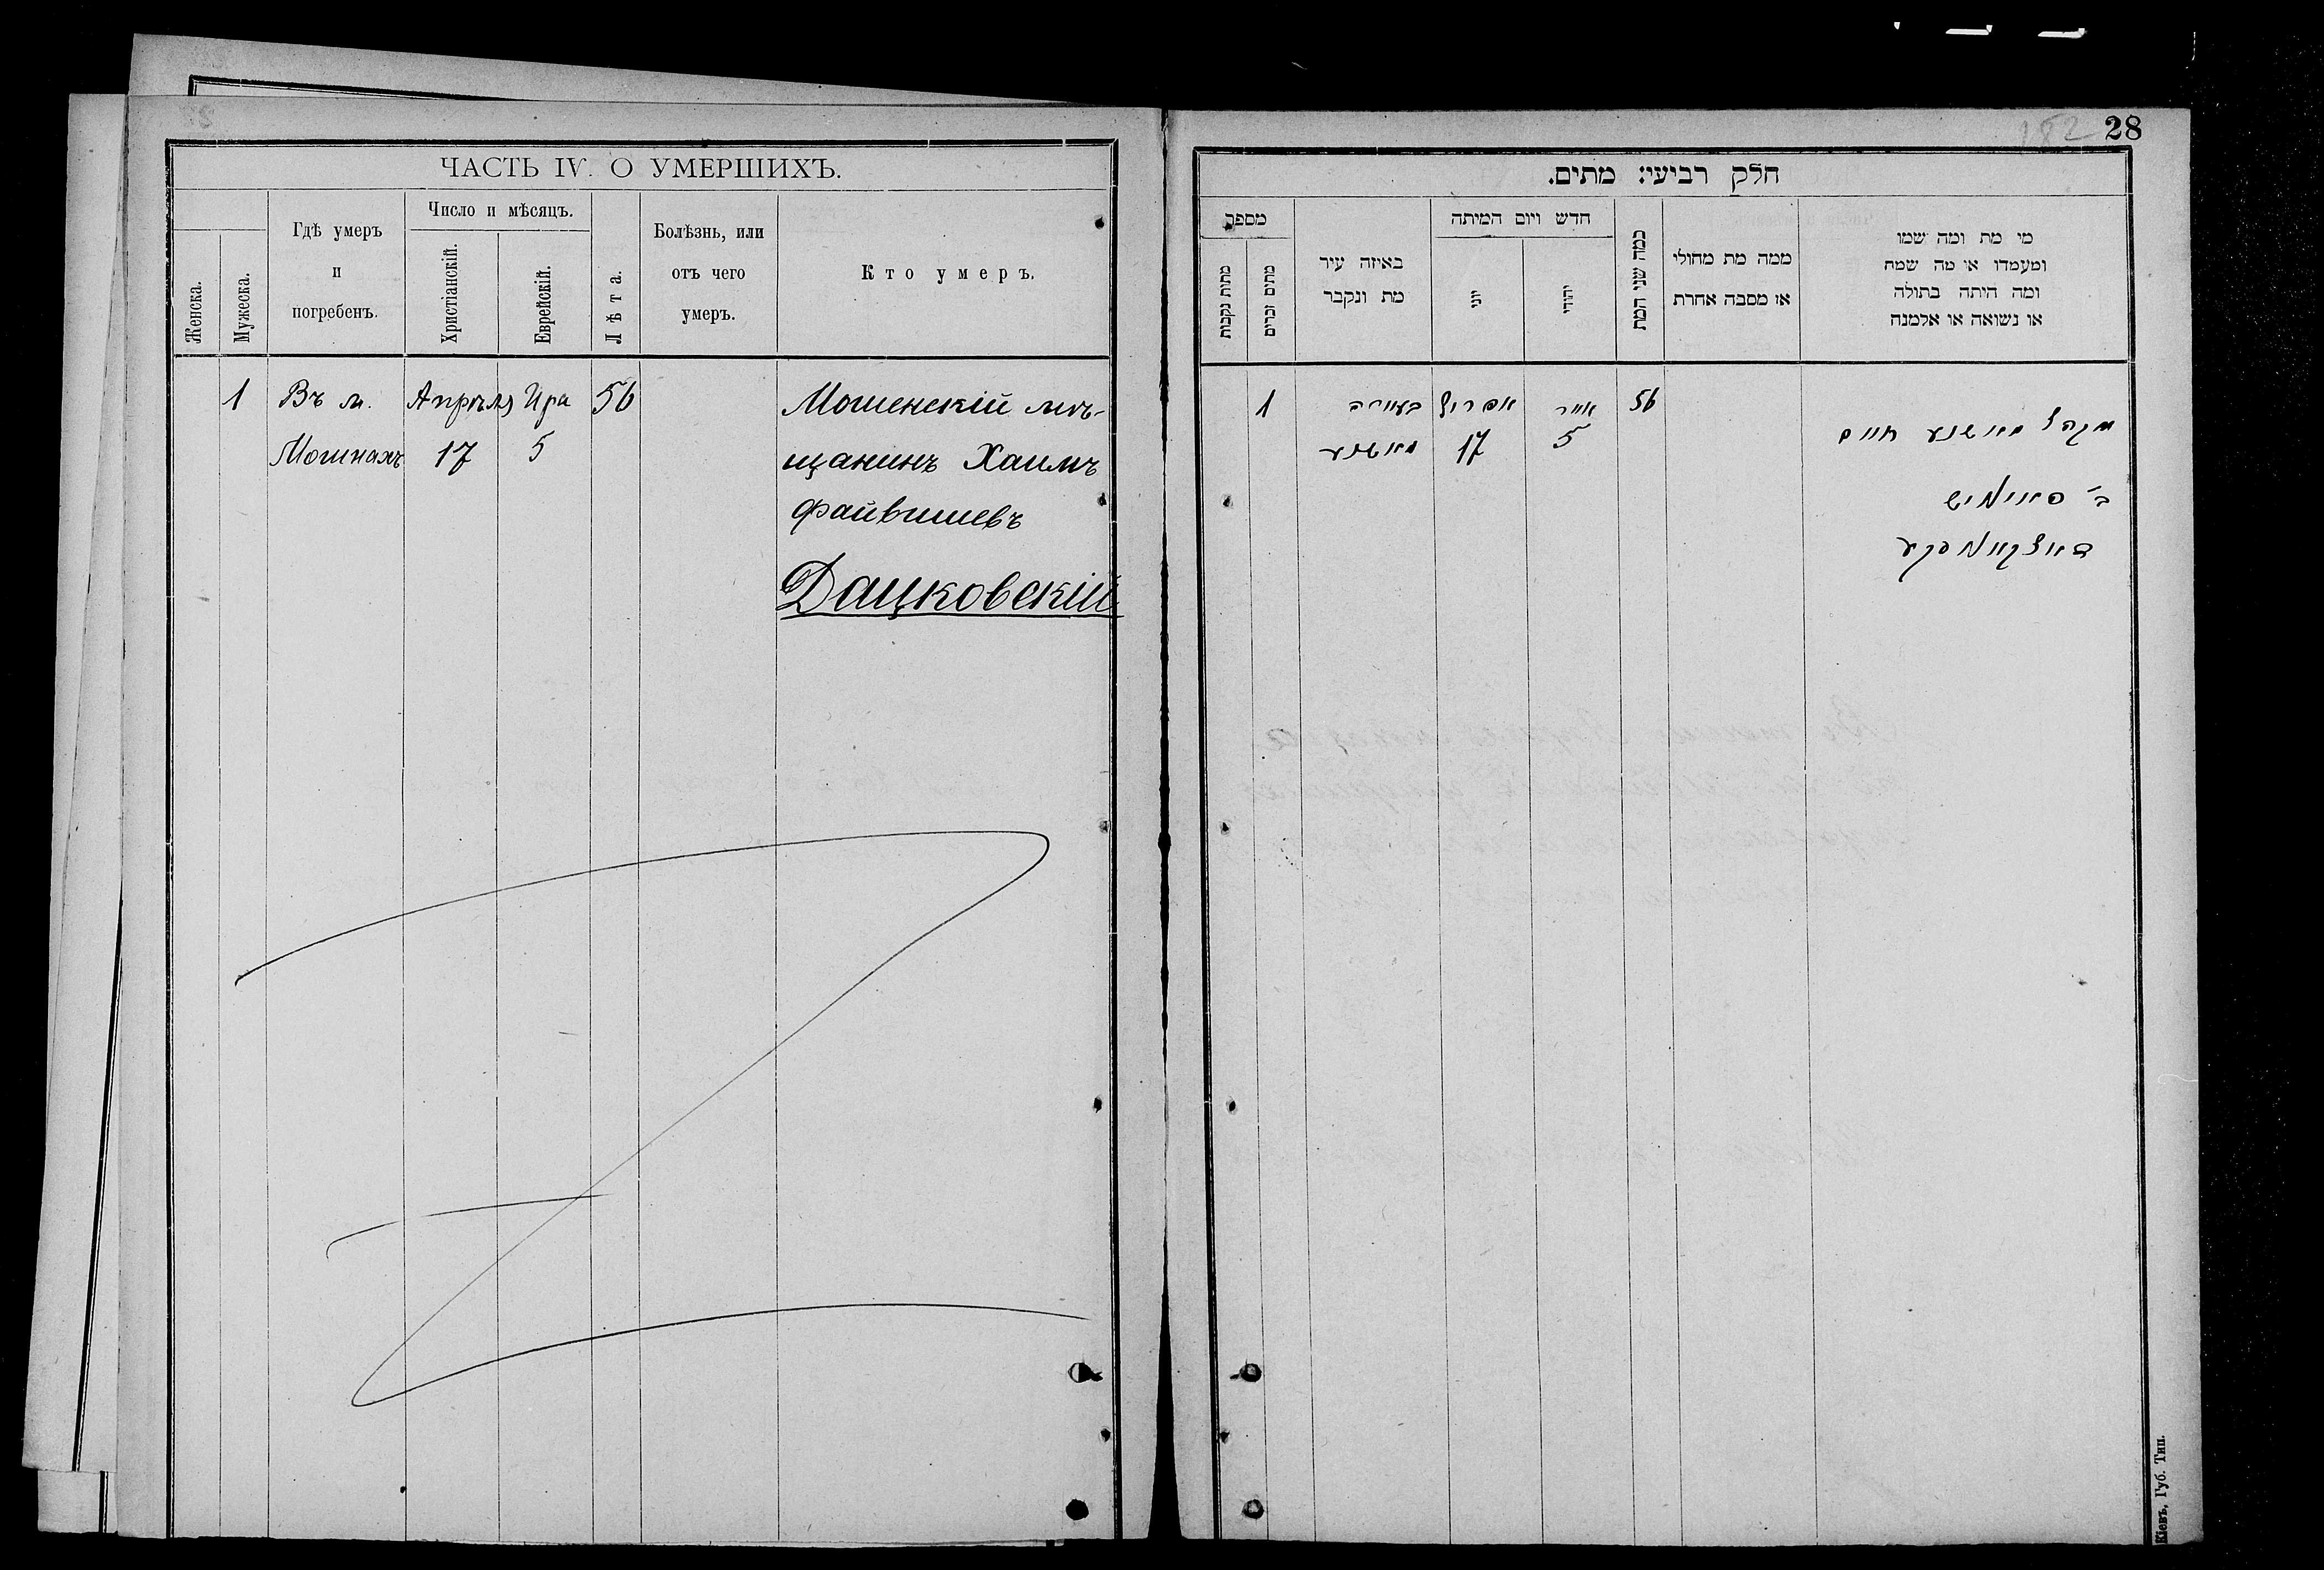 ЧАСТЬ IV. О УМЕРШИХЪ.
Женска.
Мужеска.
Гдѣ умеръ
и
погребенъ.
Число и мѣсяцъ.
Христіанскій.
Еврейскій.
Лѣта.
Болѣзнь, или
отъ чего
умеръ.
Кто умеръ.
1 Въ м. Апрѣля Ира 56 Мошенскій мѣ-
Мошнахъ 17 5 щанинъ Хаимъ
Файвишевъ
Дацковскій
182 28
חלק רביעי: מתים.
מספר
מתות נקבות
מתים זכרים
באיזה עיר
מת ונקבר
חדש ויום המיתה
יוני
יהודי
כמה שני המת
ממה מת מחולי
או מסבה אחרת
מי מת ומה שמו
ומעמדו או מה שמה
ומה היתה בתולה
או נשואה או אלמנה
1 בעיירה אפריל אייר 56
מאשנע 17 5
מקהל מאשנע חיים
ב׳ פאיוויש
דאצקאווסקי
Кіевъ, Губ. Тип.